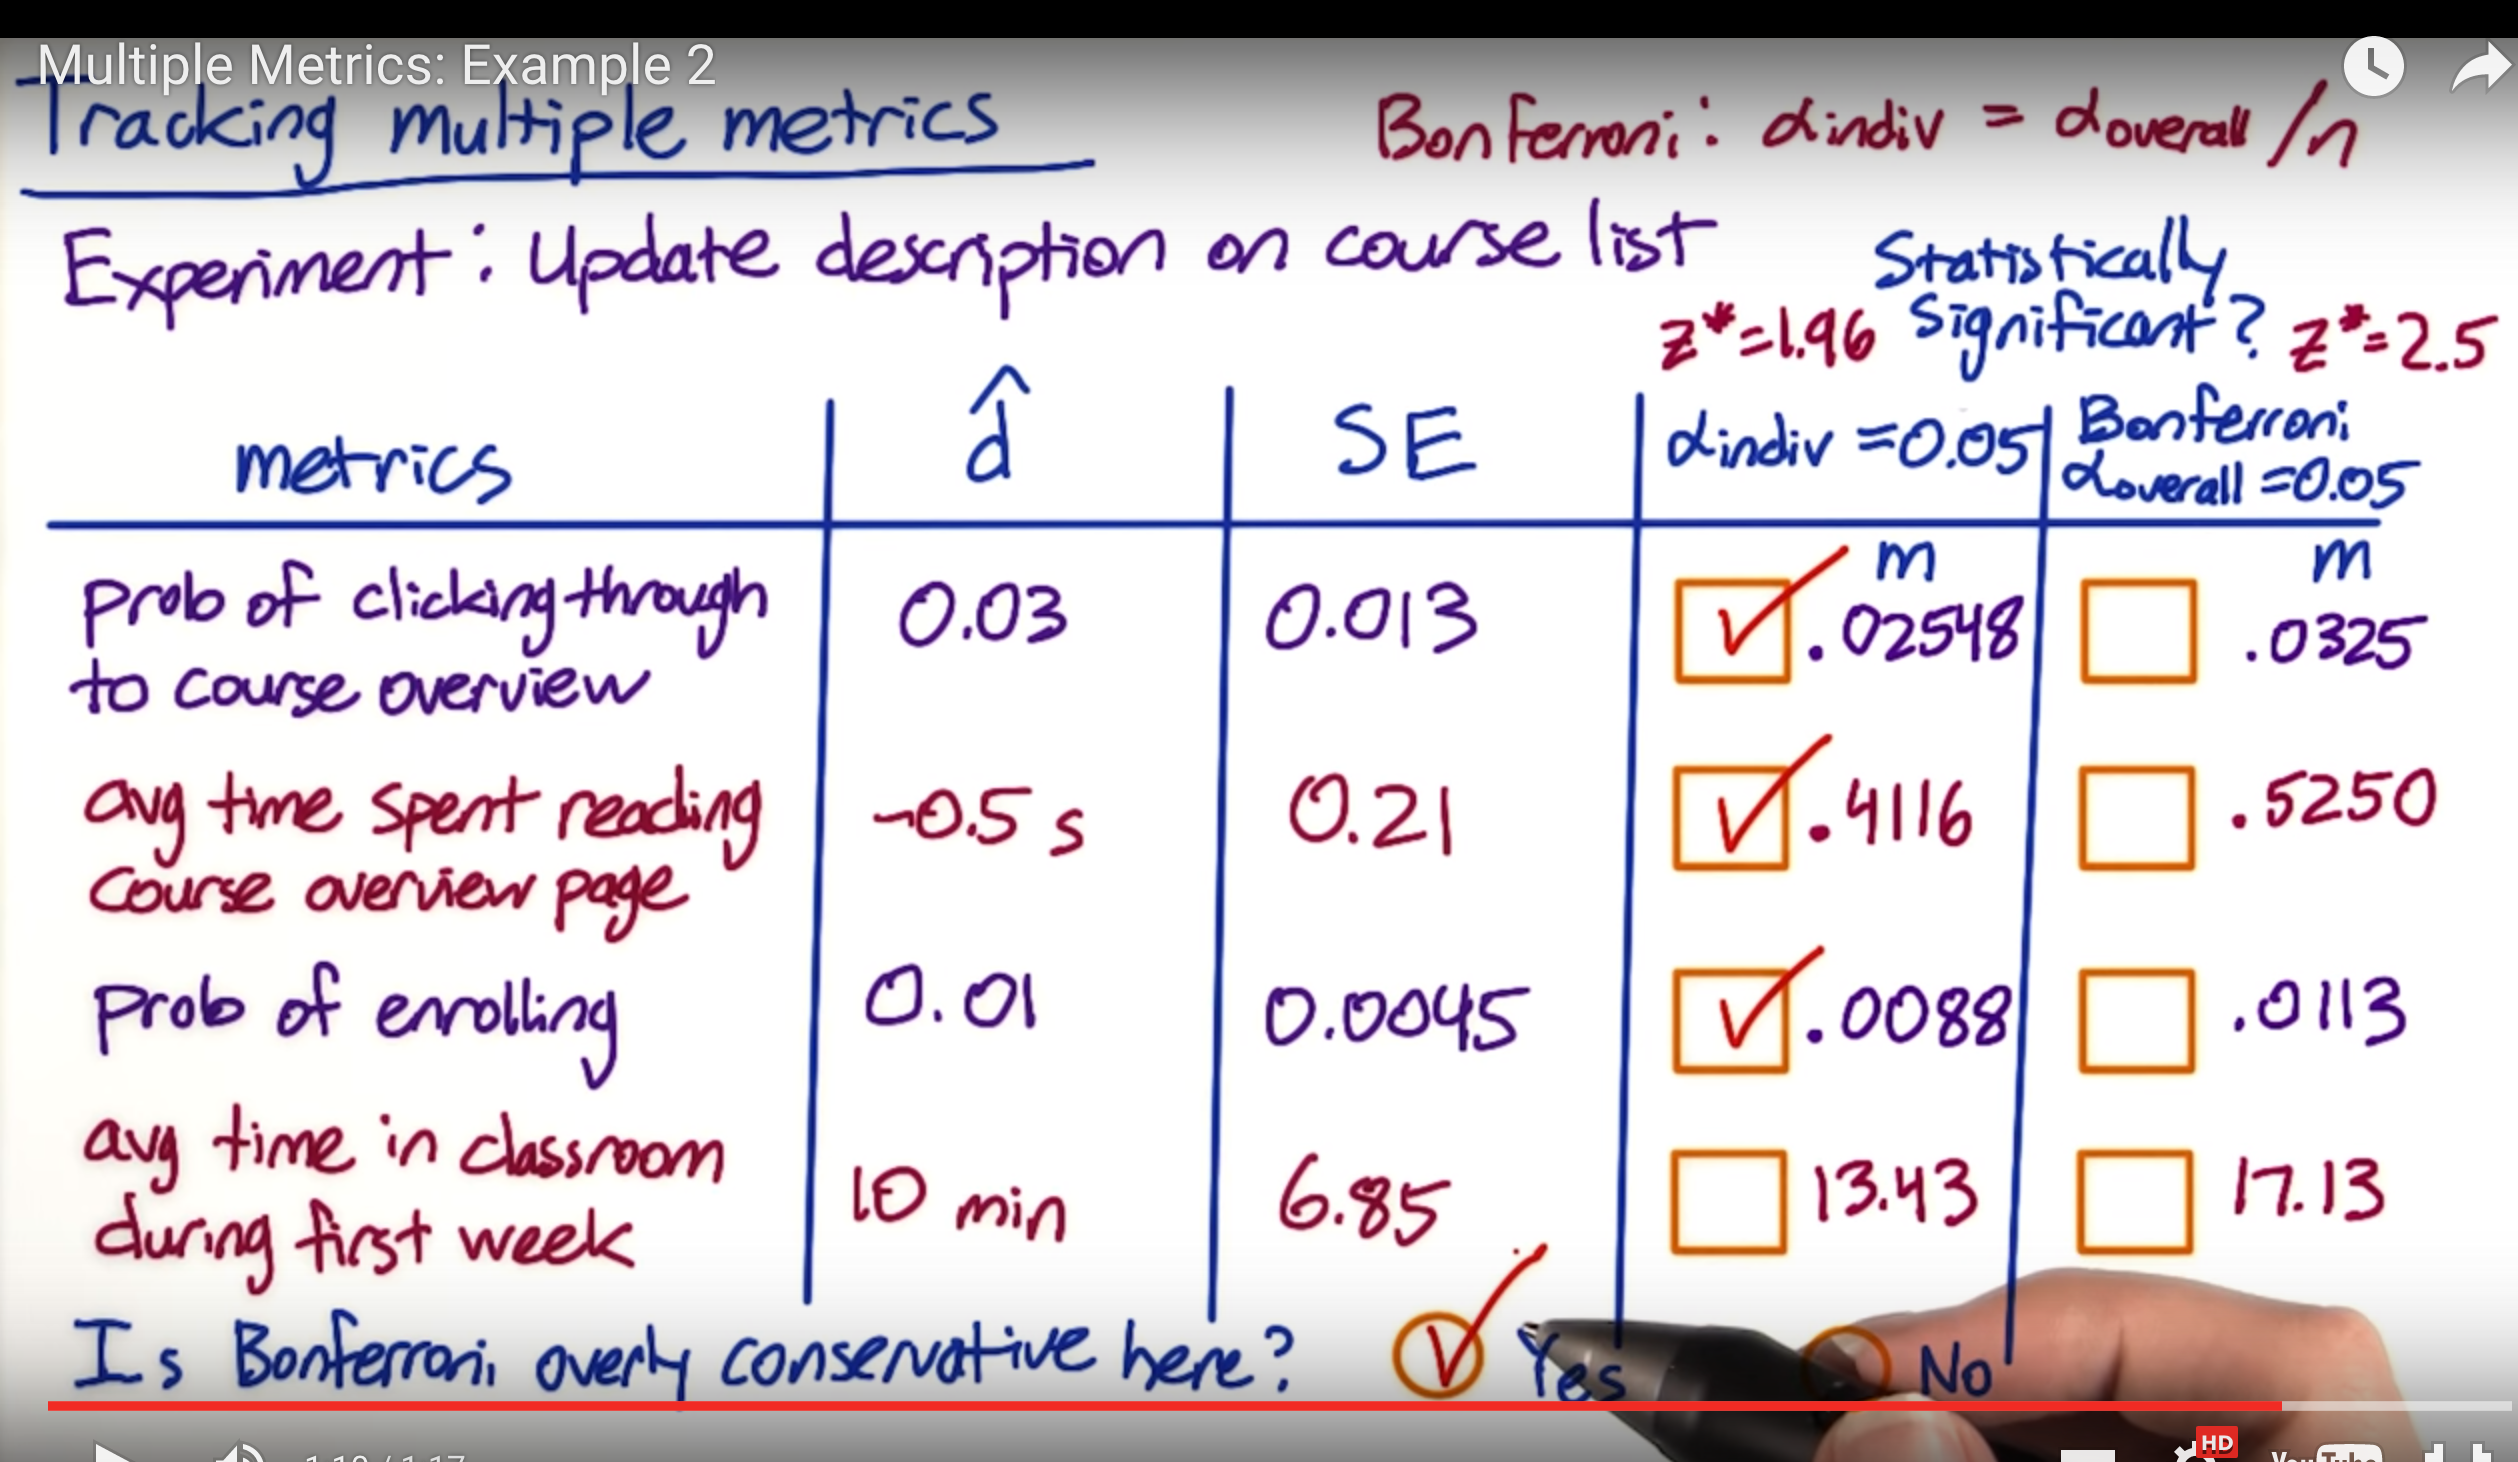 Multiple Metrics: Example 2
Tracking multiple metrics
Bonferroni: αindiv = αoverall/n
Experiment: Update description on course list
Statistically
Significant?
z*=1.96
z*=2.5
metrics
d̂
SE
αindiv =0.05
Bonferroni
αoverall =0.05
m
m
prob of clicking through
to course overview
0.03
0.013
✓
.02548
.0325
avg time spent reading
course overview page
-0.5 s
0.21
✓
.4116
.5250
prob of enrolling
0.01
0.0045
✓
.0088
.0113
avg time in classroom
during first week
10 min
6.85
13.43
17.13
Is Bonferroni overly conservative here?
✓
Yes
No
HD
YouTube